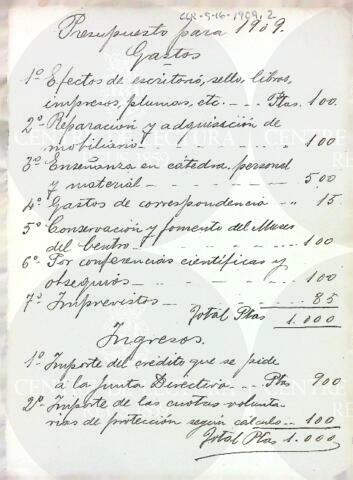 CLR-5-16-1909, 2
Presupuesto para 1909.
Gastos
1º Efectos de escritorio, sello, libros,
impresos, plumas, etc. - - . Ptas. 100.
2º Reparación y adquisición de
mobiliario - - - - - .. 100
3º Enseñanza en cátedra, personal
y material - - - - - - - 500
4º Gastos de correspondencia .. " 15.
5º Conservación y fomento del Museo
del Centro - - - - - - ... 100.
6º Por conferencias científicas y
obsequios - - - - - - .. 100
7º Imprevistos - - - - - ... 85
Total Ptas 1.000
Ingresos.
1º Importe del crédito que se pide
á la Junta Directiva - - Ptas 900
2º Importe de las cuotas volunta-
rias de protección según cálculo .. 100
Total Ptas 1.000